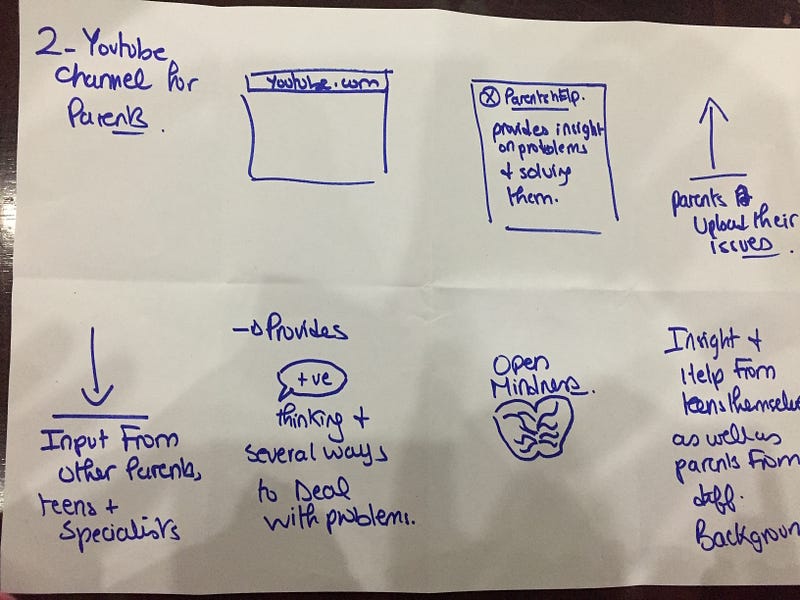 2- Youtube
Channel for
Parents.
Youtube.com
X Parentshelp.
provides insight
on problems
& solving
them.
parents
Upload their
issues
Input From
other Parents,
teens +
Specialists
→ Provides
+ve
thinking +
several ways
to Deal
with problems.
Open
Mindness.
Insight &
Help From
teens themselves
as well as
parents From
diff.
Backgroun